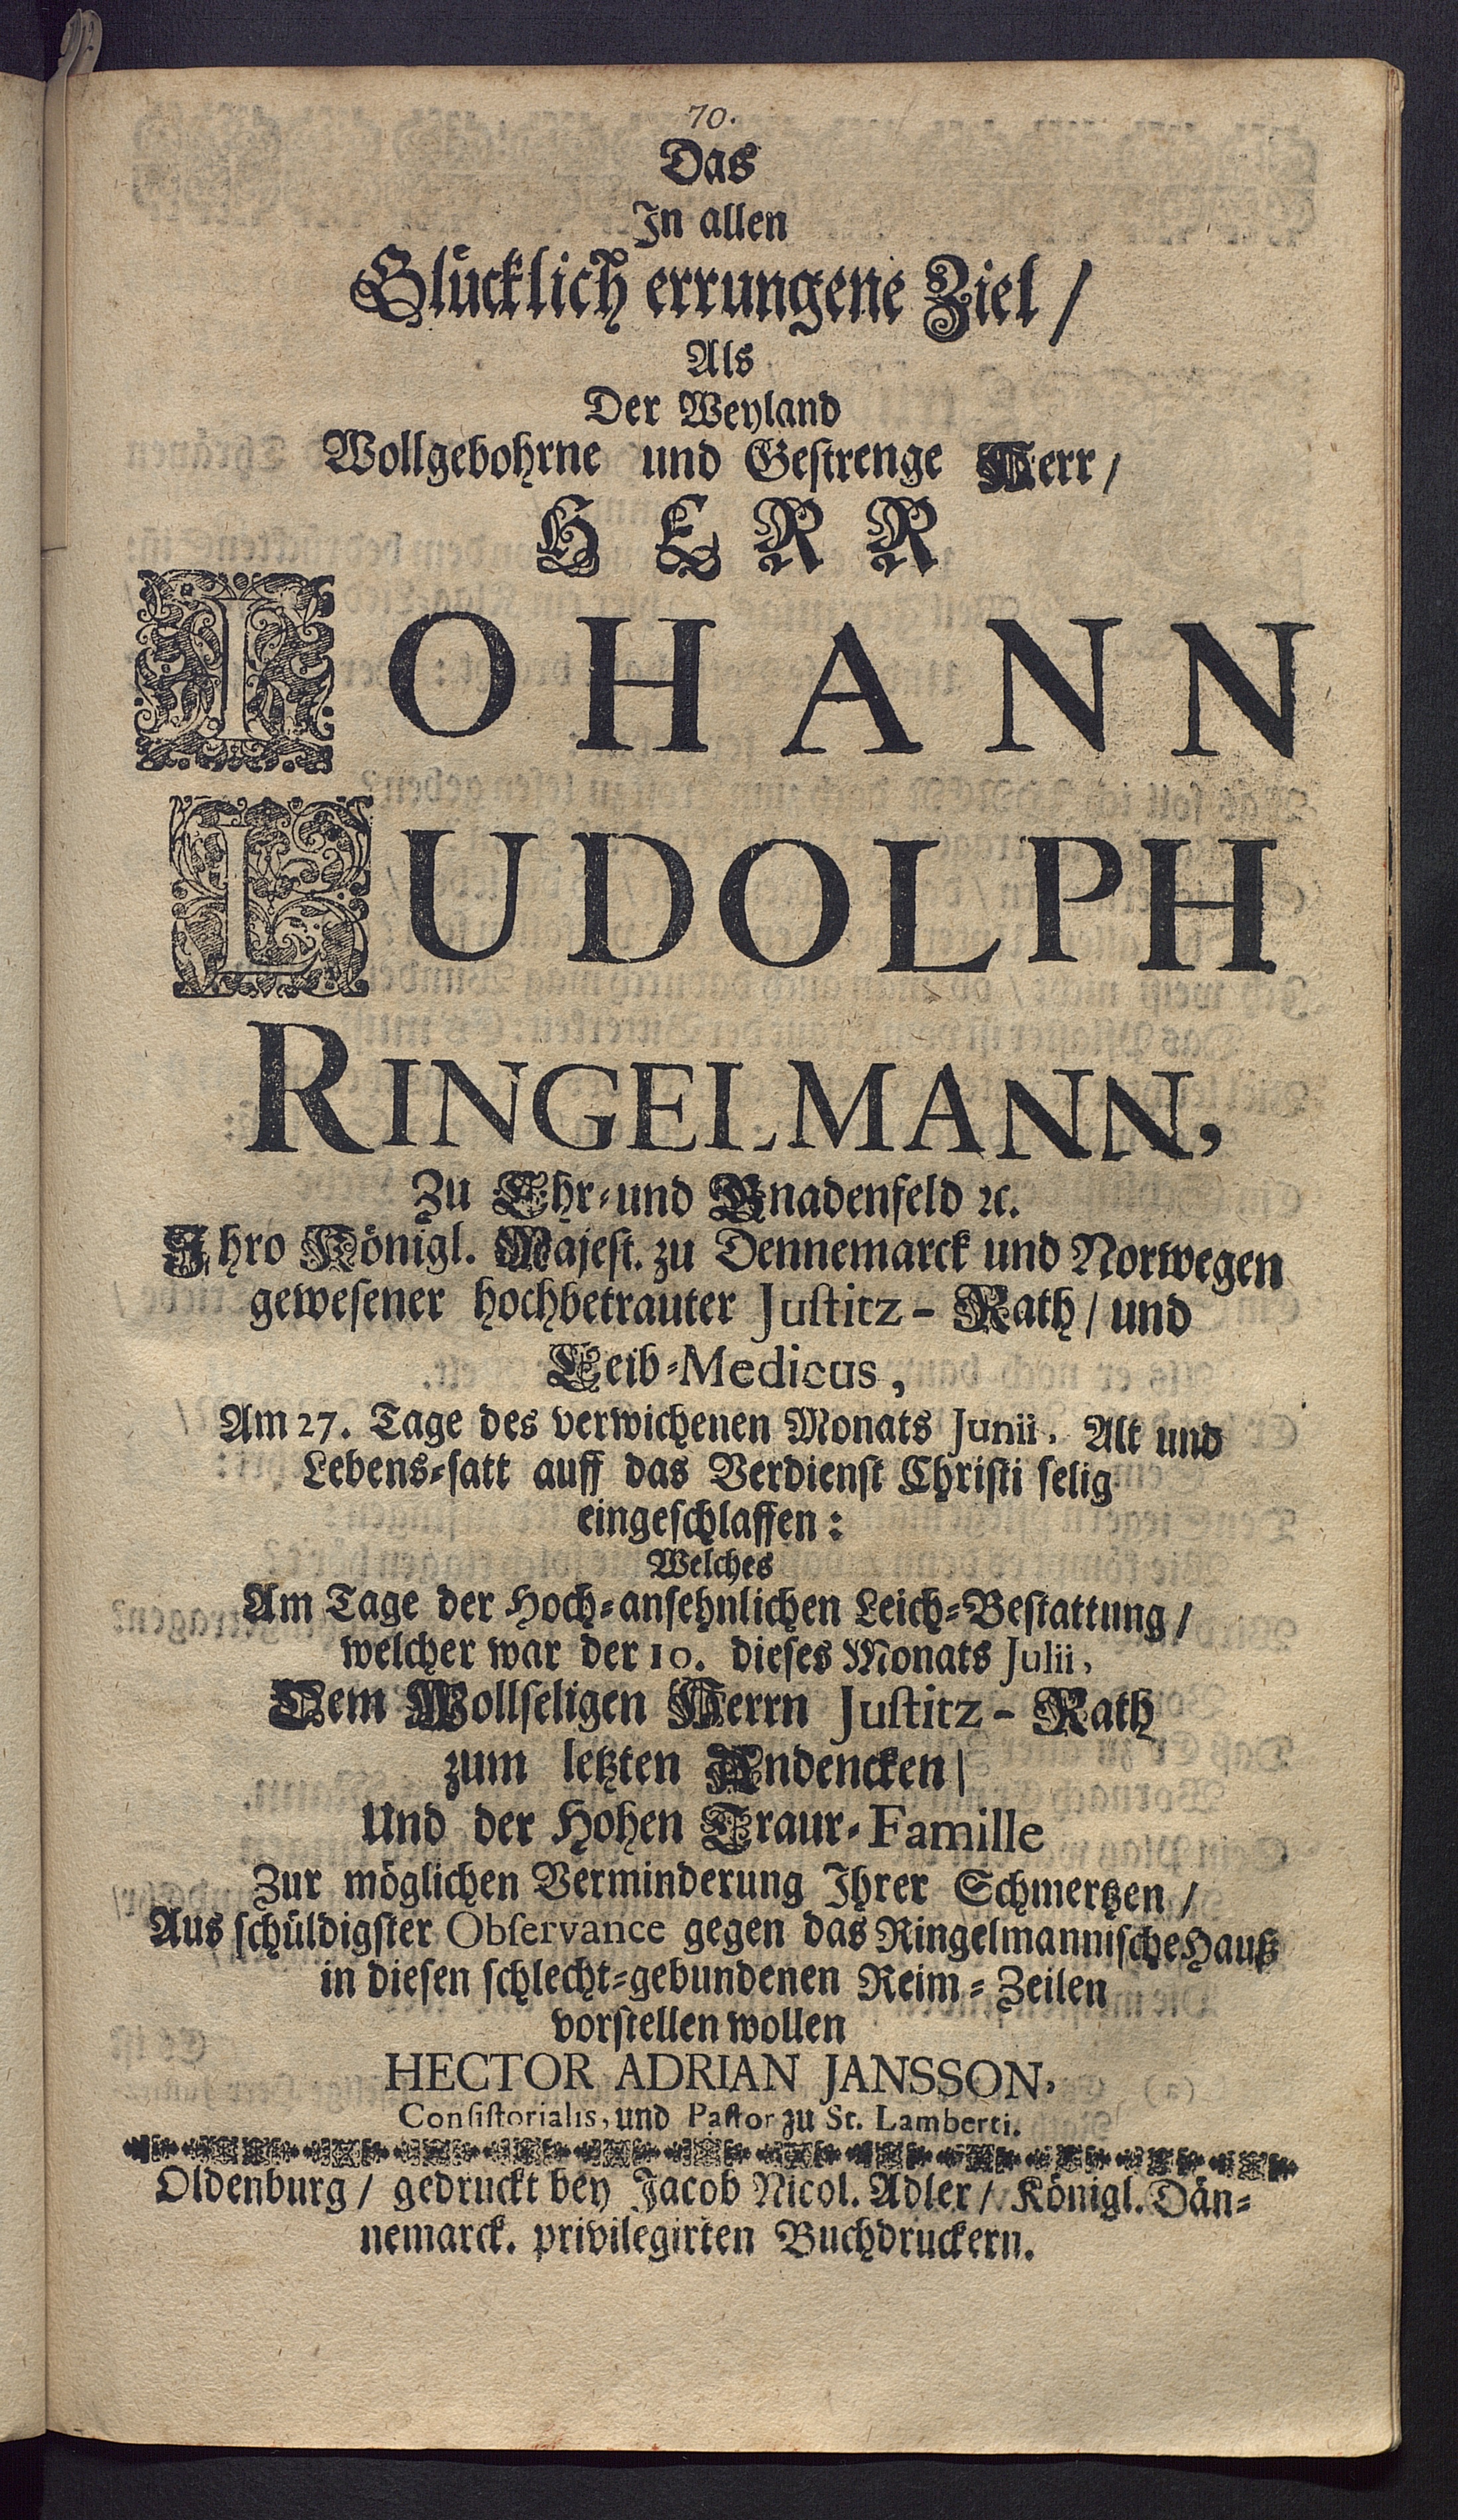 70.
Das
In allen
Glücklich errungene Ziel /
Als
Der Weyland
Wollgebohrne und Gestrenge Herr /
HERR
JOHANN
LUDOLPH
RINGELMANN,
Zu Ehr- und Gnadenfeld ꝛc.
Ihro Königl. Majest. zu Dennemarck und Norwegen
gewesener hochbetrauter Justitz- Rath / und
Leib-Medicus,
Am 27. Tage des verwichenen Monats Junii. Alt und
Lebens-satt auff das Verdienst Christi selig
eingeschlaffen:
Welches
Am Tage der Hoch-ansehnlichen Leich-Bestattung /
welcher war der 10. dieses Monats Julii,
Dem Wollseligen Herrn Justitz- Rath
zum letzten Andencken /
Und der Hohen Traur-Famille
Zur möglichen Verminderung Ihrer Schmertzen /
Aus schüldigster Observance gegen das Ringelmannische Hauß
in diesen schlecht-gebundenen Reim-Zeilen
vorstellen wollen
HECTOR ADRIAN JANSSON,
Consistorialis, und Pastor zu St. Lamberti.
Oldenburg / gedruckt bey Jacob Nicol. Adler / Königl. Dän-
nemarck. privilegirten Buchdruckern.